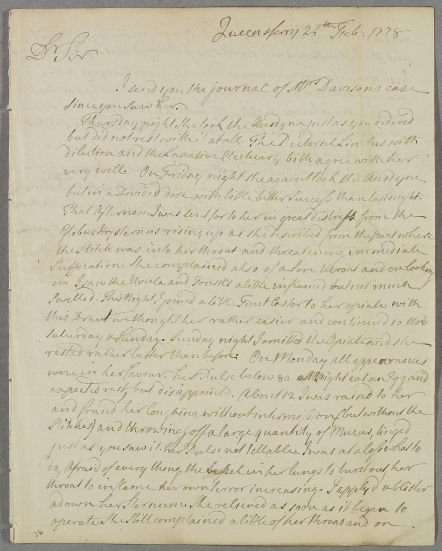 Queensferry 25th Feb. 1778
Dr Sir
I send you the journal of Mrs Dawson's case
since you saw her.
Thursday night She took the Anodyne just as you ordered
but did not rest with it at all. The Decoction has with
dilution and the Laxative Electuary both agree with her
very well. On Friday night she again took the Anodyne
but in a Divided dose with little better Success than last night.
That Afternoon I was sent for to her in great distress from the
Globus Hystericus rising up as she described from the part where
the Stitch was into her throat and threatening immediate
Suffocation She complained also of a sore throat and on looking
in I saw the Uvula and Tonsils a little inflamed but not much
Swelled. This Night I joined a little Tinct Castor to her opiate with
this Draut we thought her rather easier and continued so thro
Saturday & Sunday. Sunday night I omitted the Opiate and she
rested rather better than before. On Monday all appearances
were in her favour. her Pulse below 80 At Night calm & good and
expected rest, but disappointed. About 12 I was raised to her
and found her Coughing without intermission (but without the
Stitches) and throwing off a large quantity of Mucus,
just as you saw it. her Pulse not tellable I was at a loss what to
do, afraid of every thing the in her lungs to burst out her
throat to inflame her own terror increasing. I apply'd a blister
adown her Sternum She relieved as soon as it began to
operate She still complained a little of her throat and on